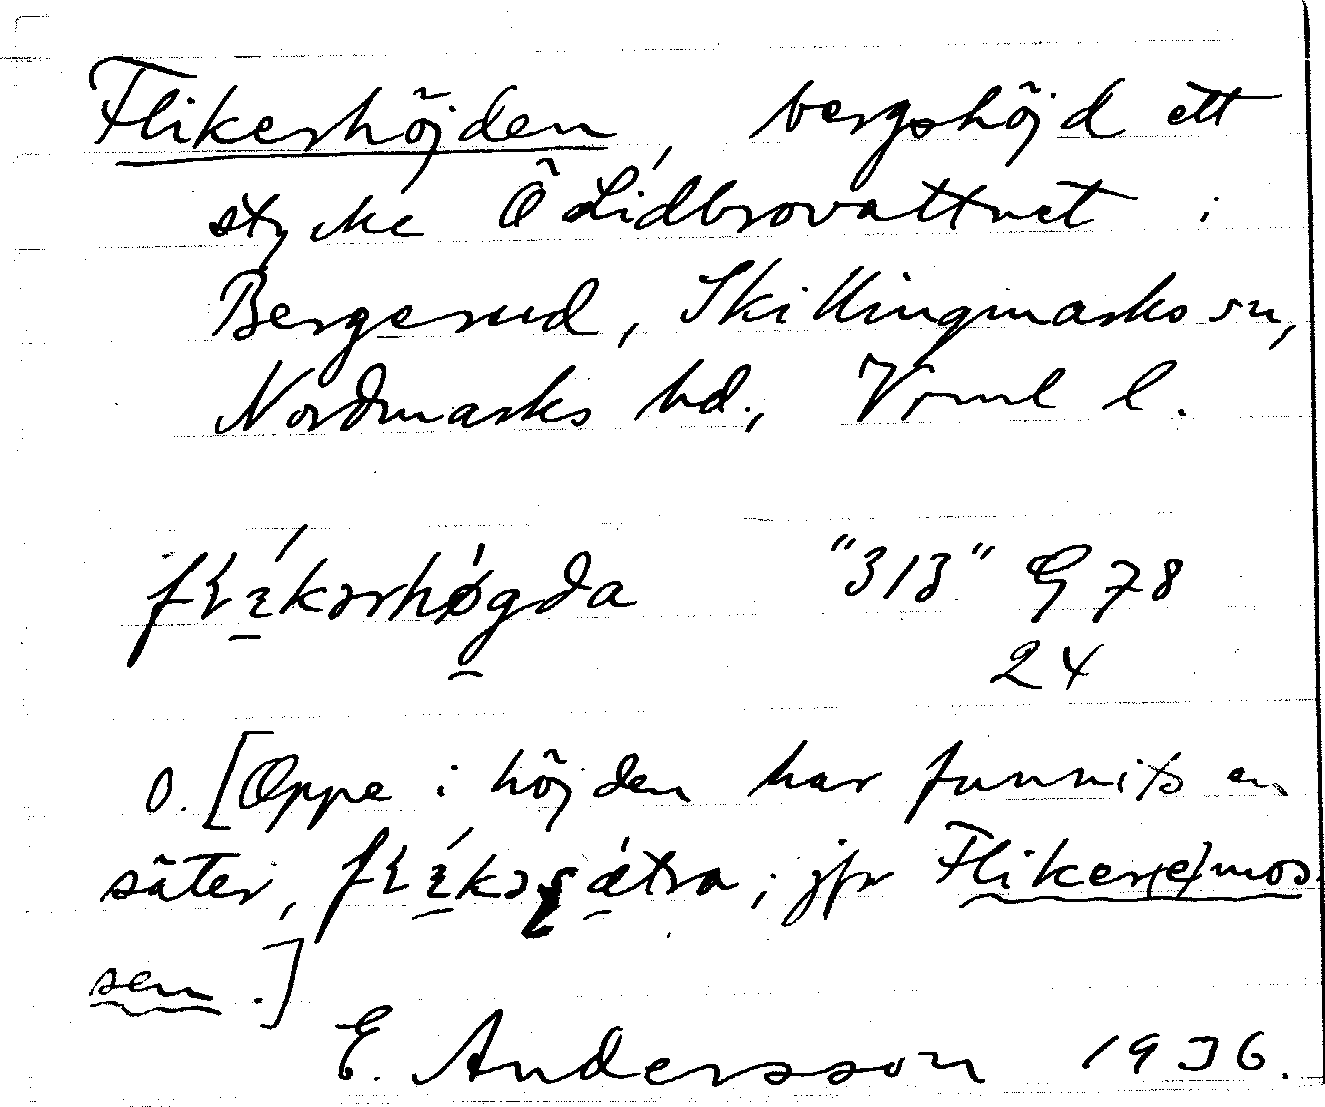 Flikerhöjden, bergshöjd ett
stycke Ö Lidbrovattnet i
Bergerud, Skillingmarks sn,
Nordmarks hd., Vrml l.
fłɩ́kərhǿgda "313" G 78
24
O. [Oppe i höjden har funnits en
säter, fłɩ́kəʂǽtra; jfr Fliker(e)mos
sen.]
E. Andersson 1936.